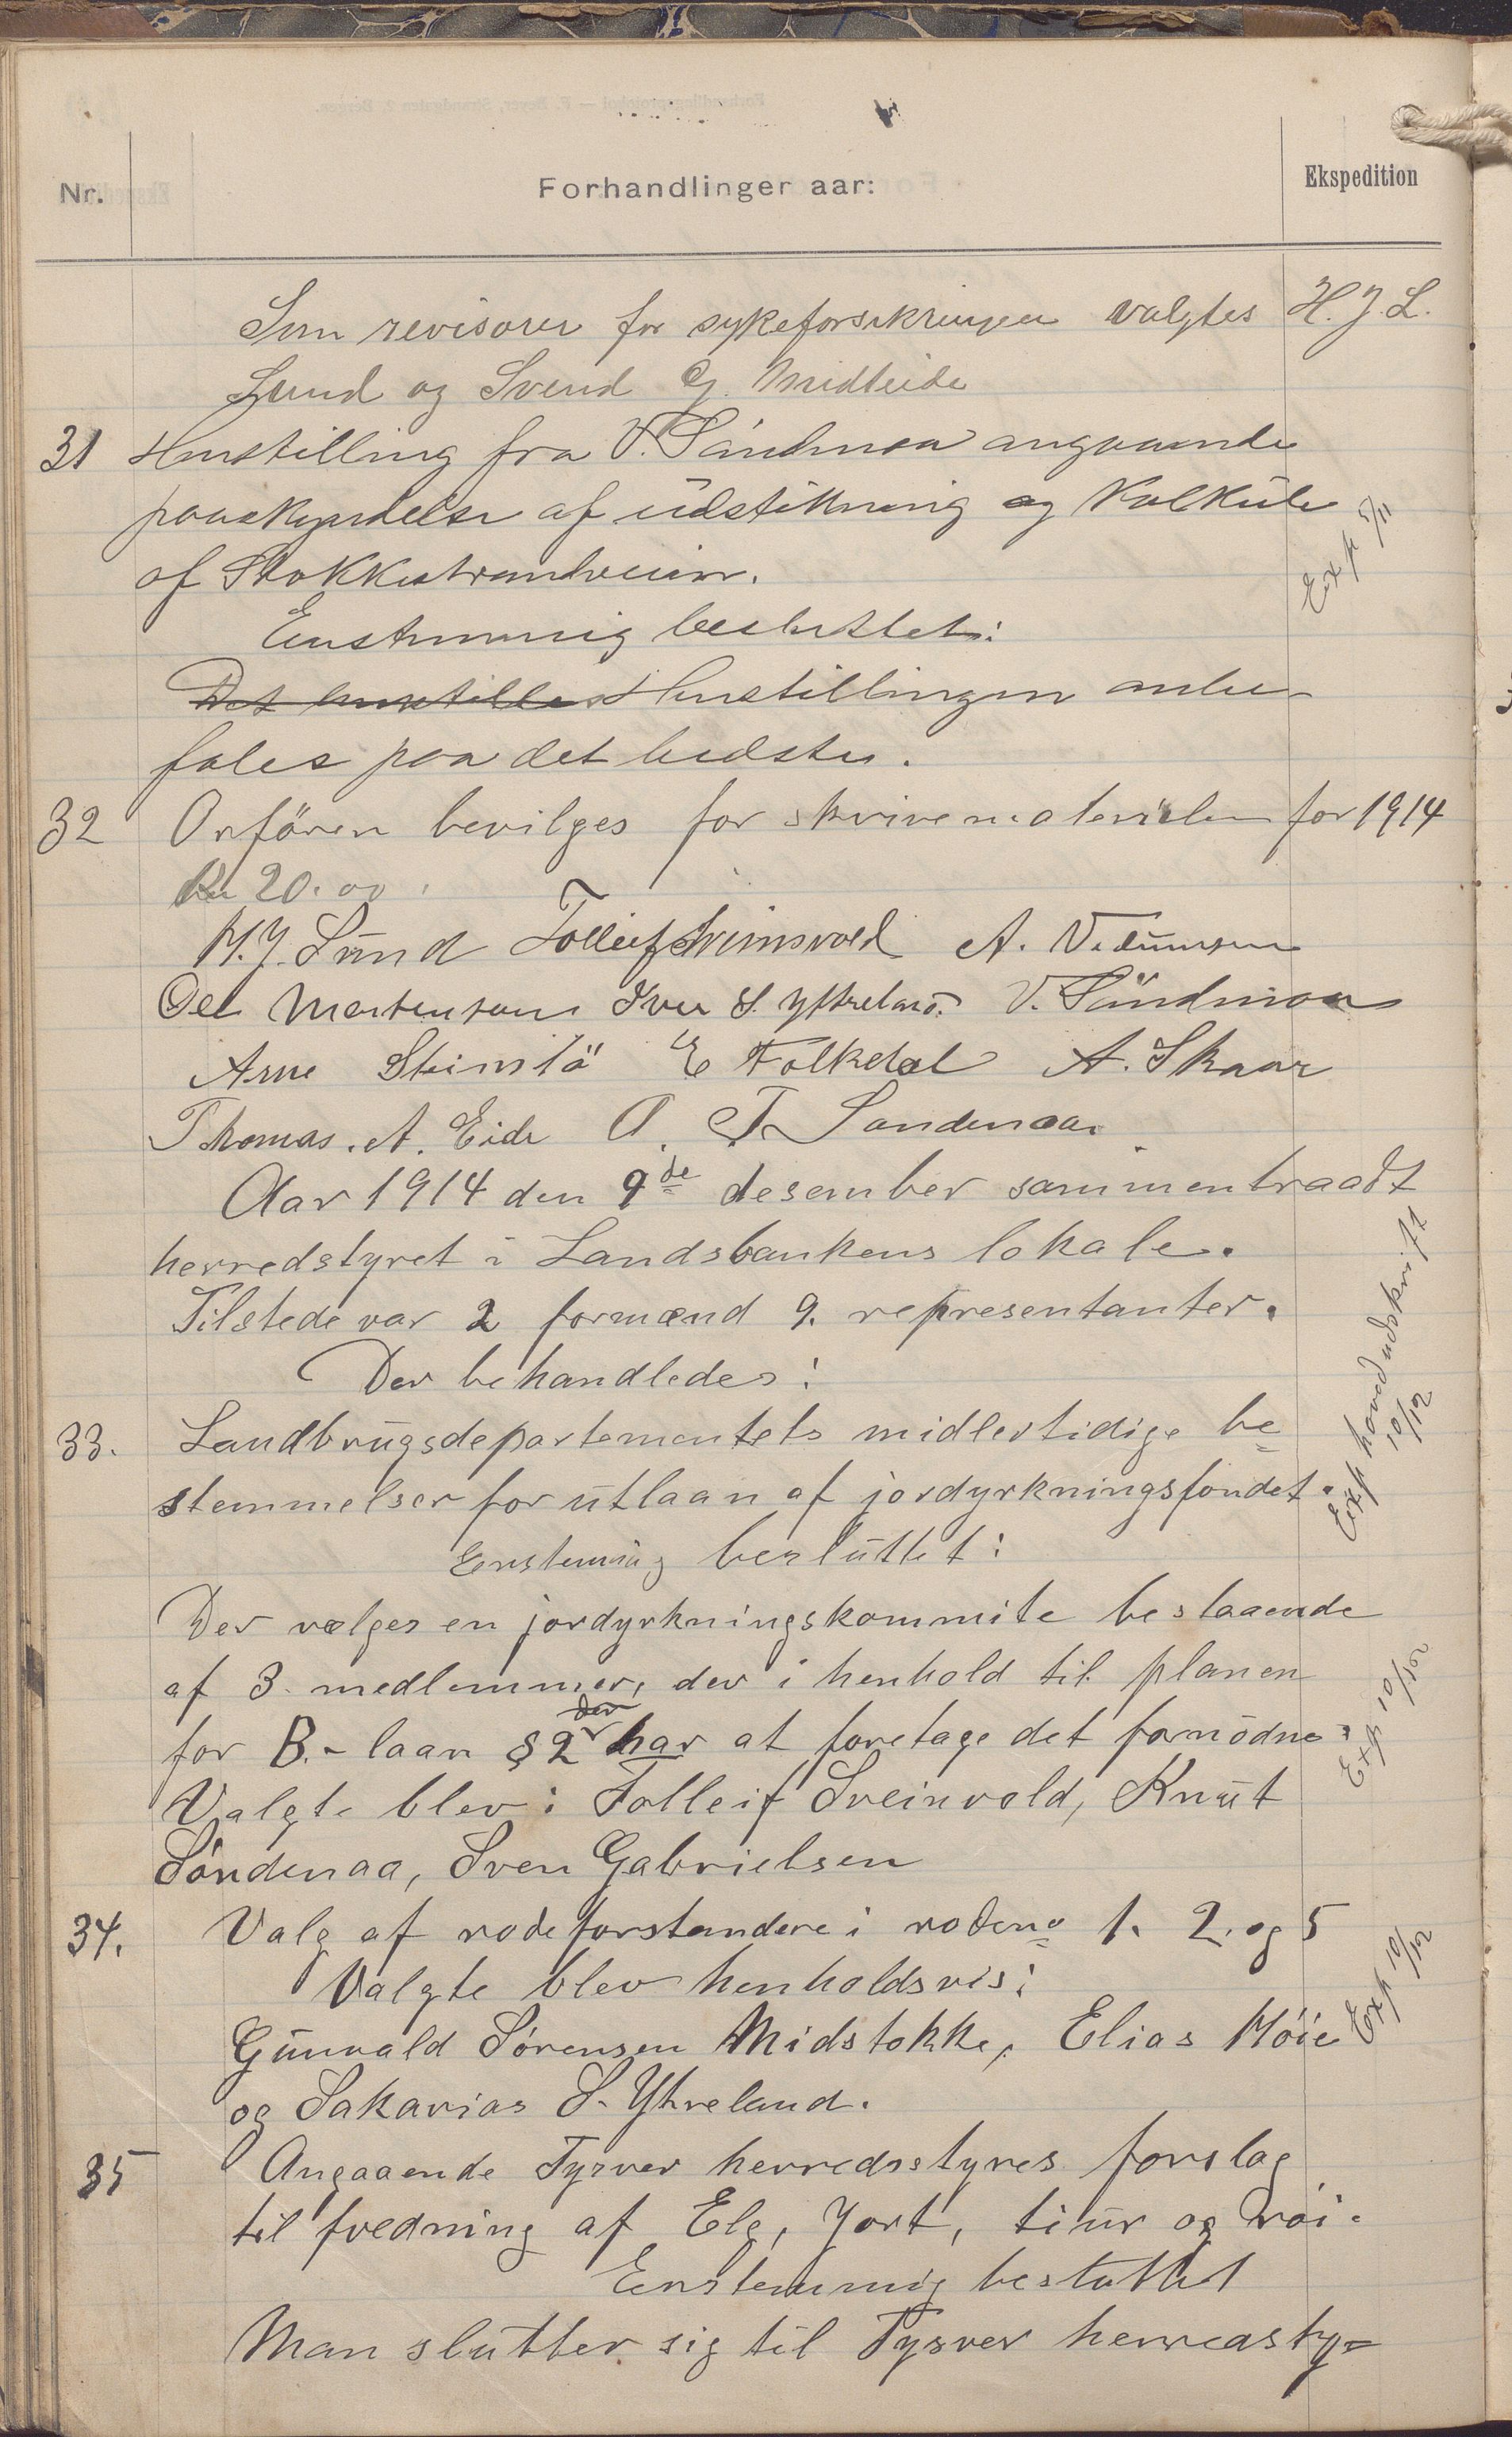 Nr.
Forhandlinger aar:
Ekspedition
Som revisorer for sykeforsikringen valgtes H. J. L.
Lund og Svend G. Midteide
31 Henstilling fra V. Søndenaa angaaende
paaskyndelse af udstikning og kalkule
af Stokkastrandveien.
Exp 5/11
Enstemmig besluttet:
Det henstilles Henstillingen anbe-
fales paa det bedste.
32 Orføren bevilges for skrivematerialer for 1914
Kr 20.00.
H. J. Lund Tolleif Sveinsvold A.
Ole Mortensen Iver S. Yttreland. V. Søndenaa
Arne Steinslø E Folkedal A. Skaar
Thomas. A. Eide O. T. Sandenaa.
Aar 1914 den 9de desember sammentraadt
herredstyret i Landsbankens lokale.
Tilstede var 2 formænd 9. representanter.
Der behandledes:
33. Landbrugsdepartementets midlertidige be=
stemmelser for utlaan af jordyrkningsfondet.
Exp hovedudskrift
10/12
Enstemig besluttet:
Der vælges en jordyrkningskommite bestaaende
af 3. medlemmer, der i henhold til planen
der
for B.- laan § 2 har at foretage det fornødne.
Exp 10/12
Valgte blev: Tolleif Sveinvold, Knut
Søndenaa, Sven Gabrielsen
34. Valg af rodeforstandere i roderne 1. 2. og 5
Valgte blev henholdsvis:
Exp 10/12
Gunvald Sørensen Midstokke, Elias Høie
og Sakarias S. Ytreland.
35 Angaaende Tysvær herredsstyres forslag
til fredning af Elg, Jort, tiur og røi.
Enstemmig besluttet
Man slutter sig til Tysvær herredsty=